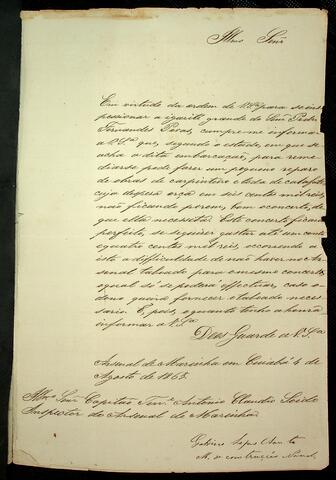 Illmo Senr
Em virtude da ordem de V.Sa. para se ins
peccionar a igarité grande do Senr Pedro
Fernandes Povoas, cumpre-me informar
a V.Sa. que, segundo o estado, em que se
acha a dita embarcação, para reme
diarse pode fazer um pequeno reparo
de obras de carpinteiro e latas de calafate
cuja despesa orça em seis centos mil reis,
não ficando porem, bem o concerto, de
que ella necessita. Este concerto ficando
perfeito, se seguier gastar até um conto
e quatro centos mil reis, occorrendo a
isto a difficuldade de não haver no Ar
senal taboado para o mesmo concerto,
o qual só se poderá effectuar, caso o
dono queira fornecer o taboado neces
sario. E, pois, o quanto tenho a honra
informar a V.Sa.
Deos Guarde a V.Sa.
Arsenal de Marinha em Cuiabá 4 de
Agosto de 1863.
Illmo Senr Capitão Tene. Antonio Claudio Soido
Inspector do Arsenal de Marinha
Lopes
M. de construcção Naval